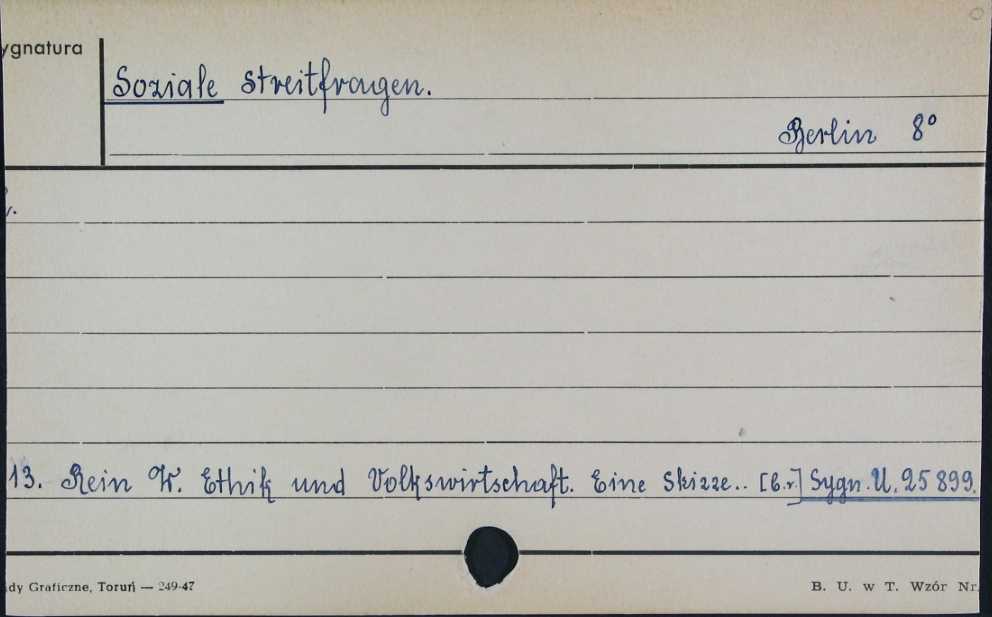 ygnatura
Soziale Streitfragen.
Berlin 8°
13. Rein W. Ethik und Volkswirtschaft. Eine Skizze.. [b.r.] Sygn. U. 25 899.
dy Graficzne, Toruń — 249-47
B. U. w T. Wzór Nr.